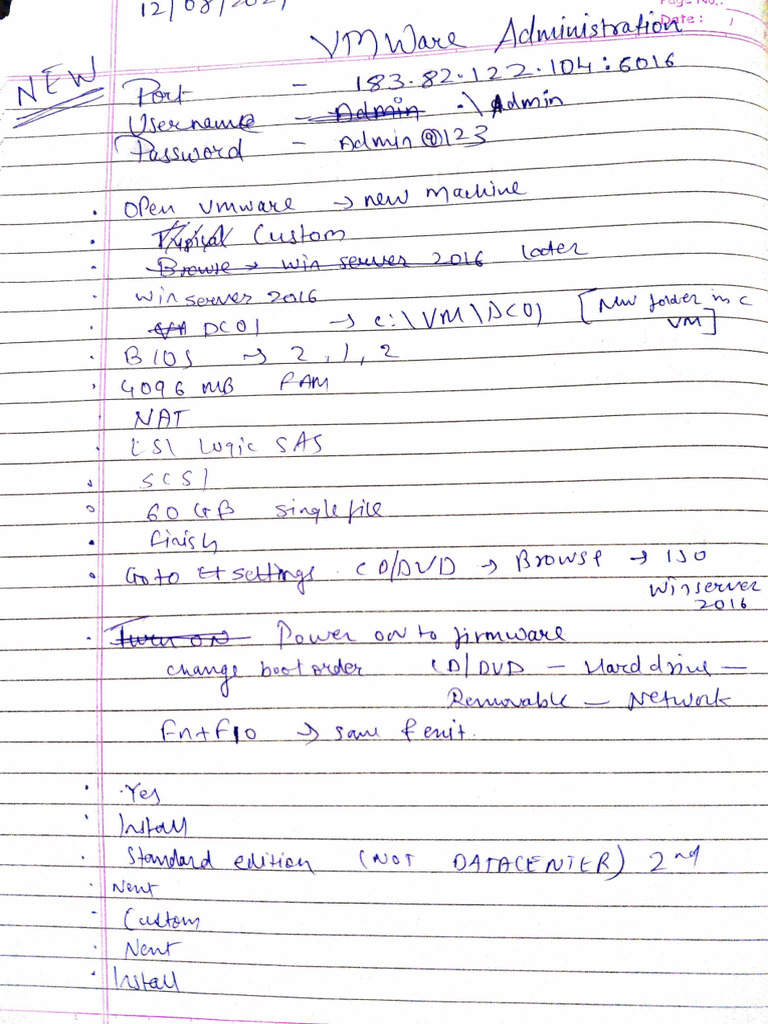 12/08/202
Page No.:
Date: 1
VMWare Administration
NEW
Port - 183.82.122.104:6016
Username - Admin .\Admin
Password - Admin@123
. Open vmware → new machine
. Typical Custom
. Browse → win server 2016 later
. win server 2016
. VM DC01 → C:\VM\DC01 [New folder in C
VM]
. BIOS → 2, 1, 2
. 4096 MB RAM
. NAT
. LSI Logic SAS
. SCSI
. 60 GB single file
. finish
. Go to settings. CD/DVD → Browse → ISO
Winserver
2016
. Turn on Power on to firmware
change boot order CD/DVD - Hard drive -
Removable - Network
Fn+F10 → save & exit.
. Yes
. Install
. Standard edition (NOT DATACENTER) 2nd
. Next
. Custom
. Next
. Install